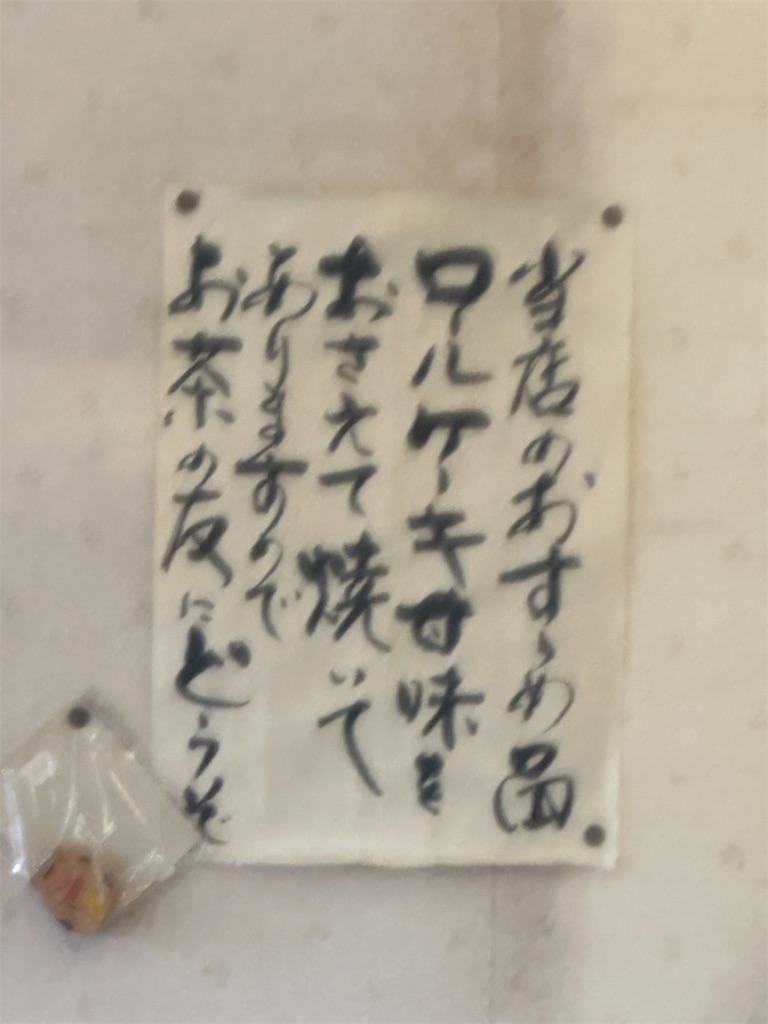 当店のおすゝめ品
ロールケーキ甘味を
おさえて焼いて
ありますので
お茶の友にどうぞ